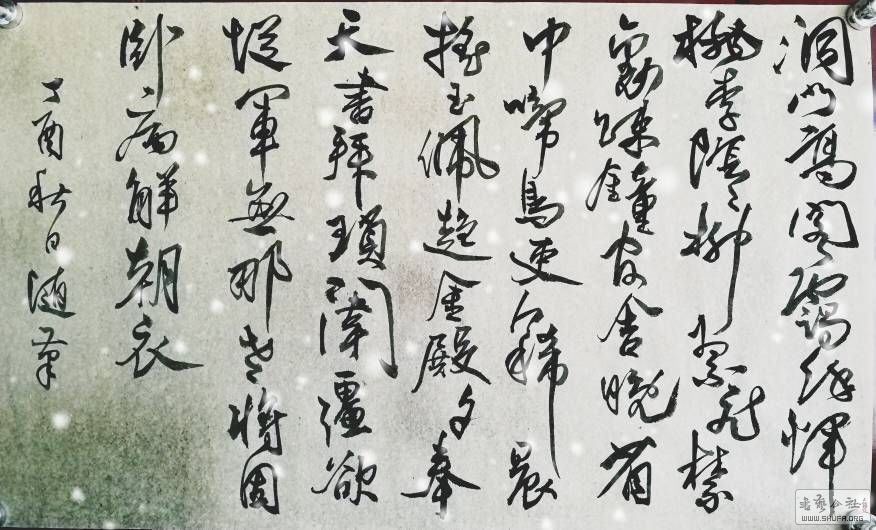 洞門高閣靄餘暉
桃李陰々柳絮飛禁
裏疎鐘官舍晚省
中啼鳥吏人稀晨
搖玉佩趨金殿夕奉
天書拜瑣闈彊欲
從軍無那老將因
臥病解朝衣
丁酉秋日隨筆
书艺公社
WWW.SHUFA.ORG